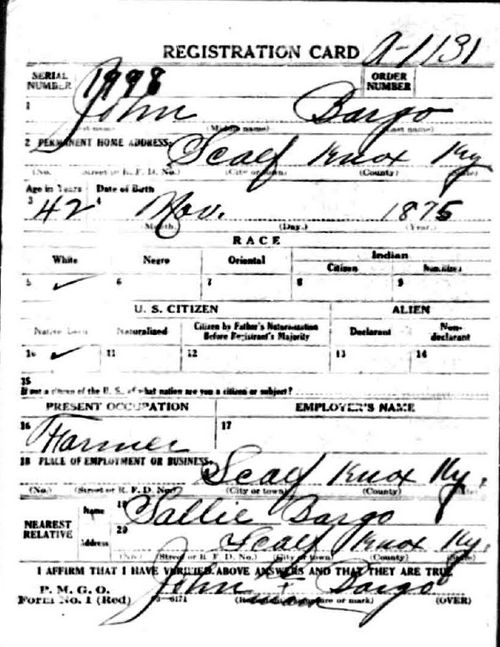 REGISTRATION CARD A-1131
SERIAL NUMBER 1998 ORDER NUMBER
1 John Bargo
(Middle name) (Last name)
2 PERMANENT HOME ADDRESS: Scalf Knox Ky
(No.) (Street or R. F. D. No.) (City or town) (County) (State)
Age in Years Date of Birth
3 42 4 Nov. 1875
(Month.) (Day.) (Year.)
RACE
White Negro Oriental Indian
Citizen Noncitizen
5 ✓ 6 7 8 9
U. S. CITIZEN ALIEN
Native Born Naturalized Citizen by Father's Naturalization Before Registrant's Majority Declarant Non-declarant
10 ✓ 11 12 13 14
15
If not a citizen of the U. S., of what nation are you a citizen or subject?
PRESENT OCCUPATION EMPLOYER'S NAME
16 Farmer 17
18 PLACE OF EMPLOYMENT OR BUSINESS: Scalf Knox Ky.
(No.) (Street or R. F. D. No.) (City or town) (County) (State)
NEAREST RELATIVE Name 19 Sallie Bargo
Address 20 Scalf Knox Ky.
(No.) (Street or R. F. D. No.) (City or town) (County) (State)
I AFFIRM THAT I HAVE VERIFIED ABOVE ANSWERS AND THAT THEY ARE TRUE
P. M. G. O.
Form No. 1 (Red) 3-6171 John + Bargo
(Registrant's signature or mark) (OVER)